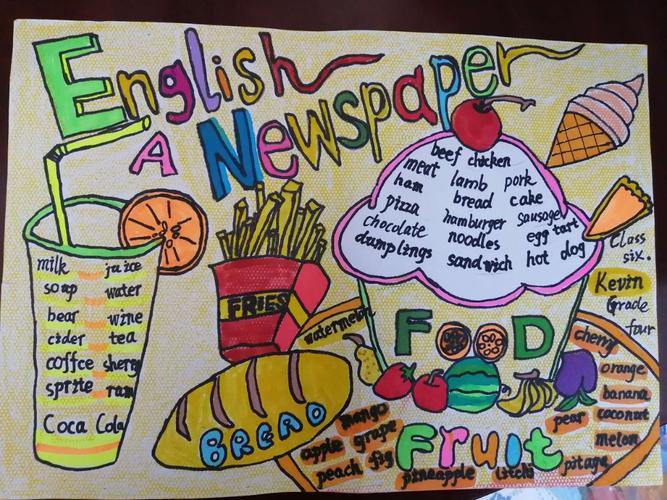 English
A Newspaper
milk juice
soup water
bear wine
cider tea
coffee sherry
sprite ram
Coca Cola
FRIES
BREAD
beef chicken
meat lamb pork
ham bread cake
pizza hamburger sausage
chocolate noodles egg tart
dumplings sandwich hot dog
FOOD
Class
six.
Kevin
Grade
four
watermelon
cherry
orange
banana
pear coconut
melon
pitaya
mango
apple grape
peach fig
pineapple litchi
Fruit